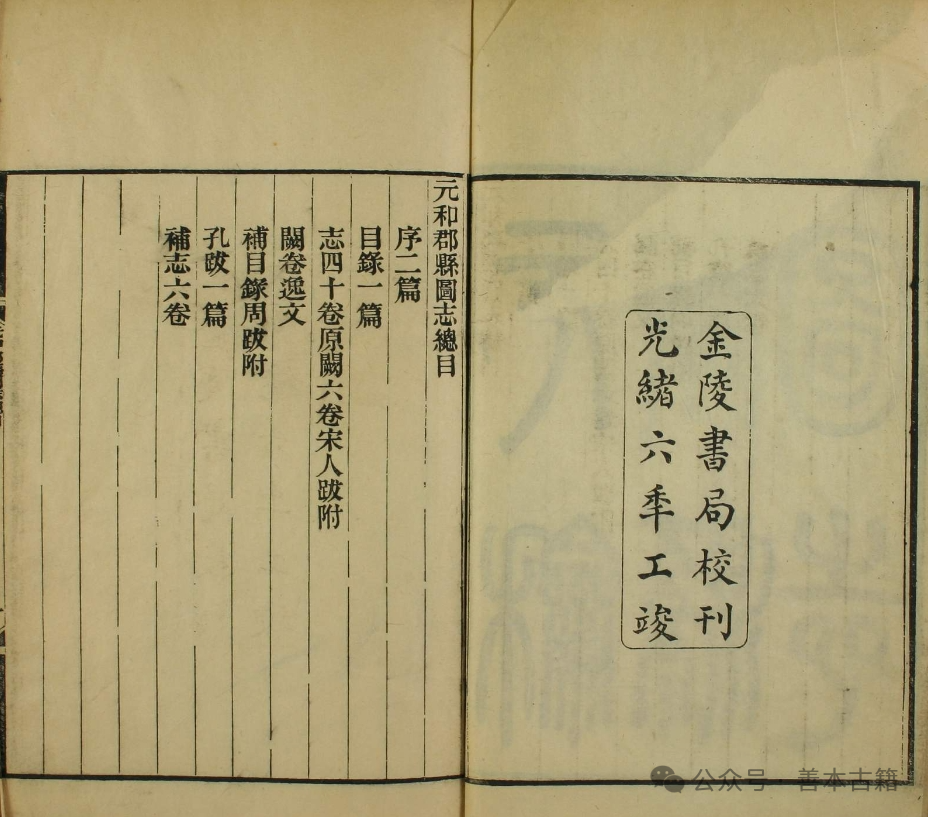 金陵書局校刊
光緒六秊工竣
元和郡縣圖志總目
序二篇
目錄一篇
志四十卷原闕六卷宋人跋附
闕卷逸文
補目錄周跋附
孔跋一篇
補志六卷
公众号·善本古籍